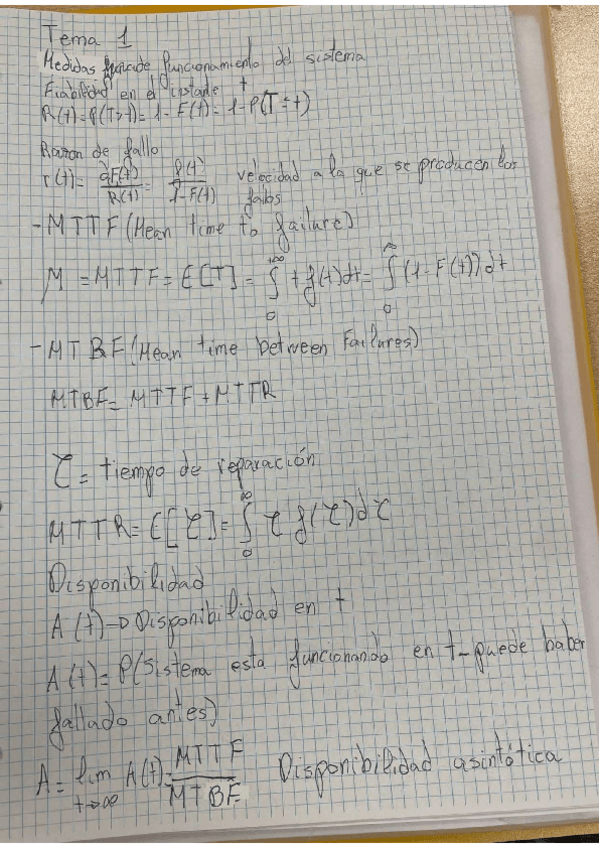 Tema 1
Medidas funcionamiento del sistema
Fiabilidad en el instante t
R(t)=P(T>t)= 1- F(t)= 1-P(T≤t)
Razon de fallo
r(t)= dF(t)/R(t) = f(t)/1-F(t) velocidad a la que se producen los
fallos
- MTTF (Mean time to failure)
M = MTTF= E[T] = ∫₀^+∞ t f(t)dt= ∫₀^∞ (1-F(t))dt
- MTBF (Mean time between Failures)
MTBF= MTTF+MTTR
τ = tiempo de reparación
MTTR= E[τ]= ∫₀^∞ τ f(τ)dτ
Disponibilidad
A(t)→Disponibilidad en t
A(t)= P(sistema esta funcionando en t-puede haber
fallado antes)
A= lim t→∞ A(t)= MTTF/MTBF Disponibilidad asintótica